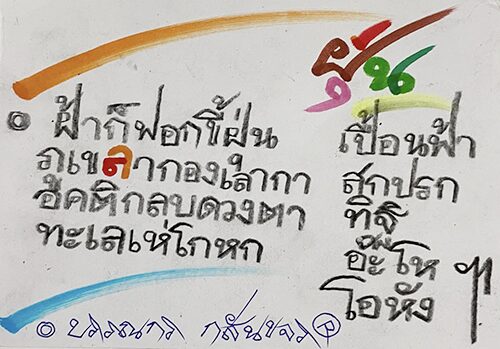 ฝุ่น
๏ ฝ้าก็ฟอกขี้ฝุ่น
ภูเขลากองเล่ากา
อคติกลบดวงตา
ทะเลเห่โกหก
เปื้อนฟ้า
สกปรก
ทิฐิ
อุ๊ะโห
โอหัง ฯ
๏ บรรณกร กลั่นขจร